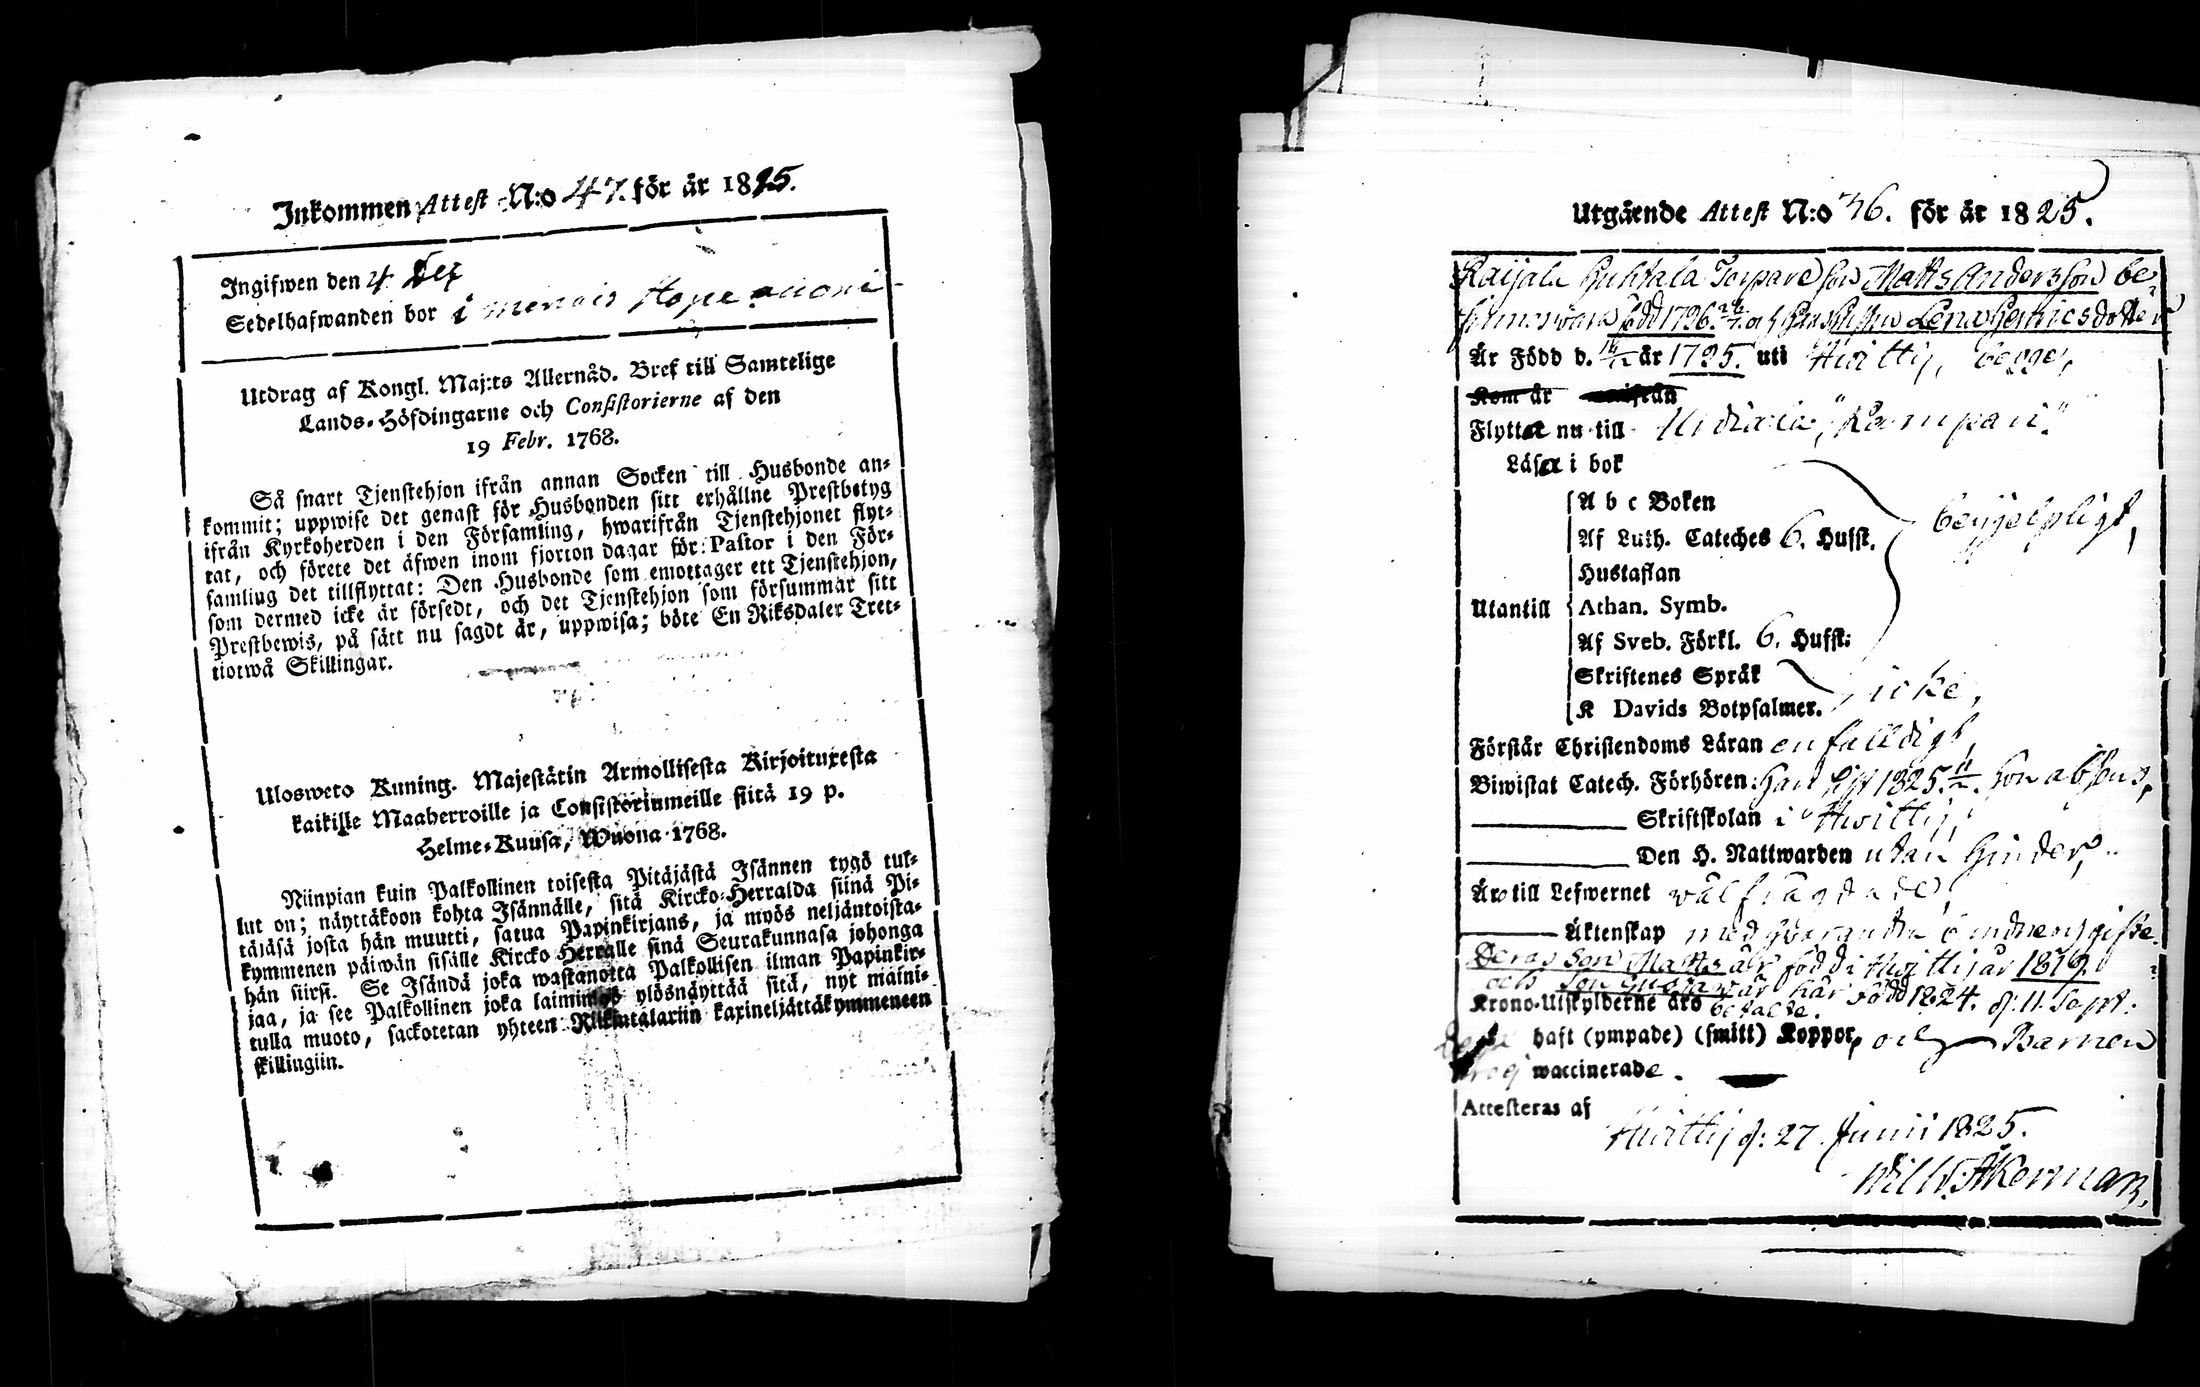 Inkommen Attest N:o 47. för år 1825.
Ingifwen den 4
Sedelhafwanden bor i
Utdrag af Kongl. Maj:ts Allernåd. Bref till Samtelige
Lands-Höfdingarne och Consistorierne af den
19 Febr. 1768.
Så snart Tjenstehjon ifrån annan Socken till Husbonde an-
kommit; uppwise det genast för Husbonden sitt erhållne Prestbetyg
ifrån Kyrkoherden i den Församling, hwarifrån Tjenstehjonet flyt-
tat, och förete det äfwen inom fjorton dagar för Pastor i den För-
samling det tillflyttat: Den Husbonde som emottager ett Tjenstehjon,
som dermed icke är försedt, och det Tjenstehjon som försummar sitt
Prestbewis, på sätt nu sagdt är, uppwisa; böte En Riksdaler Tret-
tiotwå Skillingar.
Ulosweto Kuning. Majestätin Armollisesta Kirjoituxesta
kaikille Maaherroille ja Consistoriumeille siitä 19 p.
Helme-Kuusa, Wuona 1768.
Niinpian kuin Palkollinen toisesta Pitäjästä Isännen tygö tul-
lut on; näyttäkoon kohta Isännälle, sitä Kircko-Herralda siinä Pi-
täjäsä josta hän muutti, satua Papinkirjans, ja myös neljäntoista-
kymmenen päiwän sisälle Kircko Herralle sinä Seurakunnasa johonga
hän siirst. Se Isändä joka wastanotta Palkollisen ilman Papinkir-
jaa, ja see Palkollinen joka laiminlyö ylösnäyttää sitä, nyt maini-
tulla muoto, sackotetan yhteen Riikintalariin kaxineljättäkymmeneen
skillingiin.
Utgående Attest N:o 36. för år 1825.
Raijala Huhtala Torpare son Matts Andersson be-
född 1796. och Hustru Lena Henricsdotter
År Född d. år 1795. uti Hwittis, begge,
Kom år ifrån
Flyttat nu till "Kampari"
Läsa i bok
A b c Boken
Af Luth. Cateches 6. Hufst.
Hustaflan
Utantill Athan. Symb.
Af Sveb. Förkl. 6. Hufst:
Skriftenes Språk
K Davids Botpsalmer. icke,
Förstår Christendoms Läran enfalldigt,
Biwistat Catech. Förhören: han sist 1825. hon absens,
Skriftskolan i Hwittis,
Den H. Nattwarden utan hinder,
Äro till Lefwernet wälfrägdade,
Äktenskap med hwarandra
Deras Son Matts är född i Hwittis år 1819.
och Son är här född 1824. d. 11. Sept.
Krono-Utskylderne äro betalte.
haft (ympade) (smitt) Koppor, och Barnen
waccinerade.
Attesteras af
Hwittis d: 27. Junii 1825.
Wilh. Åkerman.